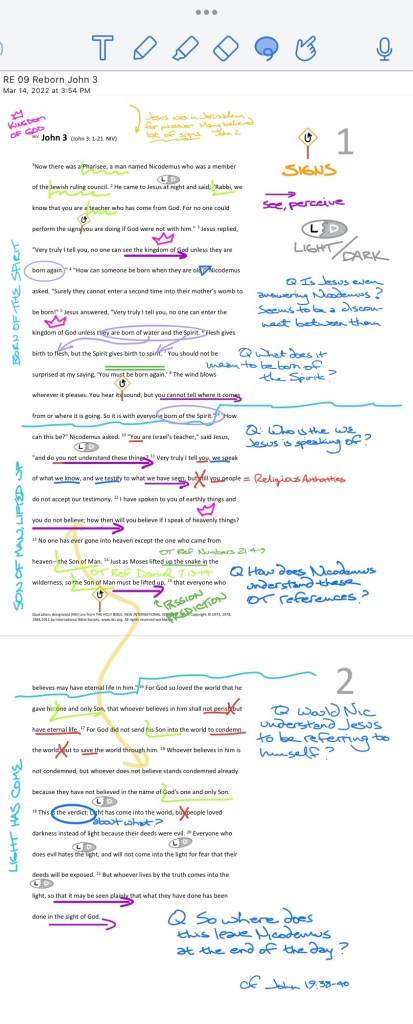 RE 09 Reborn John 3
Mar 14, 2022 at 3:54 PM
KINGDOM
OF GOD
Jesus was in Jerusalem
for passover Many believed
bc of signs. John 2
NIV John 3 (John 3: 1-21 NIV)
1
SIGNS
See, perceive
L D
LIGHT/DARK
1Now there was a Pharisee, a man named Nicodemus who was a member
L D
of the Jewish ruling council. 2 He came to Jesus at night and said, "Rabbi, we
know that you are a teacher who has come from God. For no one could
perform the signs you are doing if God were not with him." 3 Jesus replied,
"Very truly I tell you, no one can see the kingdom of God unless they are
born again." 4 "How can someone be born when they are old?" Nicodemus
asked. "Surely they cannot enter a second time into their mother's womb to
be born!" 5 Jesus answered, "Very truly I tell you, no one can enter the
kingdom of God unless they are born of water and the Spirit. 6 Flesh gives
birth to flesh, but the Spirit gives birth to spirit. 7 You should not be
surprised at my saying, 'You must be born again.' 8 The wind blows
wherever it pleases. You hear its sound, but you cannot tell where it comes
from or where it is going. So it is with everyone born of the Spirit." 9 "How
can this be?" Nicodemus asked. 10 "You are Israel's teacher," said Jesus,
L D
"and do you not understand these things? 11 Very truly I tell you, we speak
of what we know, and we testify to what we have seen, but still you people
= Religious Authorities
do not accept our testimony. 12 I have spoken to you of earthly things and
you do not believe; how then will you believe if I speak of heavenly things?
13 No one has ever gone into heaven except the one who came from
OT Ref Numbers 21:4-9
heaven—the Son of Man. 14 Just as Moses lifted up the snake in the
OT Ref Daniel 7:13-14
wilderness, so the Son of Man must be lifted up, 15 that everyone who
PASSION
PREDICTION
BORN OF THE SPIRIT
SON OF MAN LIFTED UP
Q Is Jesus even
answering Nicodemus?
Seems to be a discon-
nect between them
Q What does it
mean to be born of
the Spirit?
Q: Who is the WE
Jesus is speaking of?
Q How does Nicodemus
understand these
OT references?
2
believes may have eternal life in him." 16 For God so loved the world that he
gave his one and only Son, that whoever believes in him shall not perish but
have eternal life. 17 For God did not send his Son into the world to condemn
the world, but to save the world through him. 18 Whoever believes in him is
not condemned, but whoever does not believe stands condemned already
because they have not believed in the name of God's one and only Son.
L D
19 This is the verdict: Light has come into the world, but people loved
about what?
L D
darkness instead of light because their deeds were evil. 20 Everyone who
L D
does evil hates the light, and will not come into the light for fear that their
deeds will be exposed. 21 But whoever lives by the truth comes into the
L D
light, so that it may be seen plainly that what they have done has been
done in the sight of God.
LIGHT HAS COME
Q Would Nic
understand Jesus
to be referring to
himself?
Q So where does
this leave Nicodemus
at the end of the day?
cf John 19:38-40